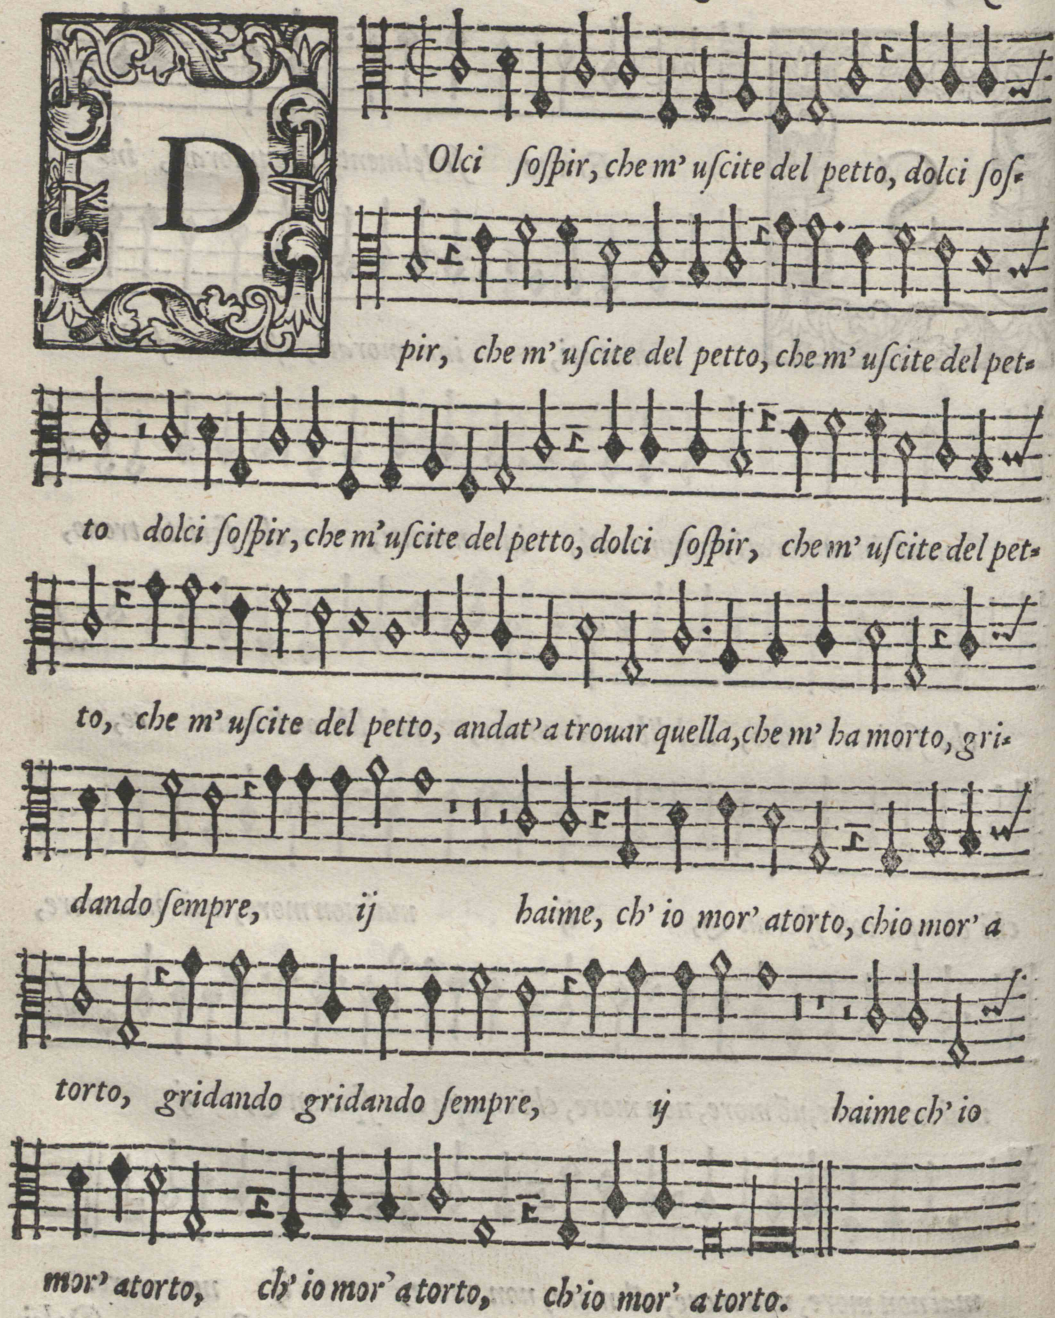 D
Olci ſoſpir, che m' uſcite del petto, dolci ſoſ-
pir, che m' uſcite del petto, che m' uſcite del pet-
to dolci ſoſpir, che m'uſcite del petto, dolci ſoſpir, che m' uſcite del pet-
to, che m' uſcite del petto, andat'a trouar quella, che m' ha morto, gri-
dando ſempre, ij haime, ch' io mor' atorto, chio mor' a
torto, gridando gridando ſempre, ij haime ch' io
mor' atorto, ch' io mor' a torto, ch'io mor' a torto.